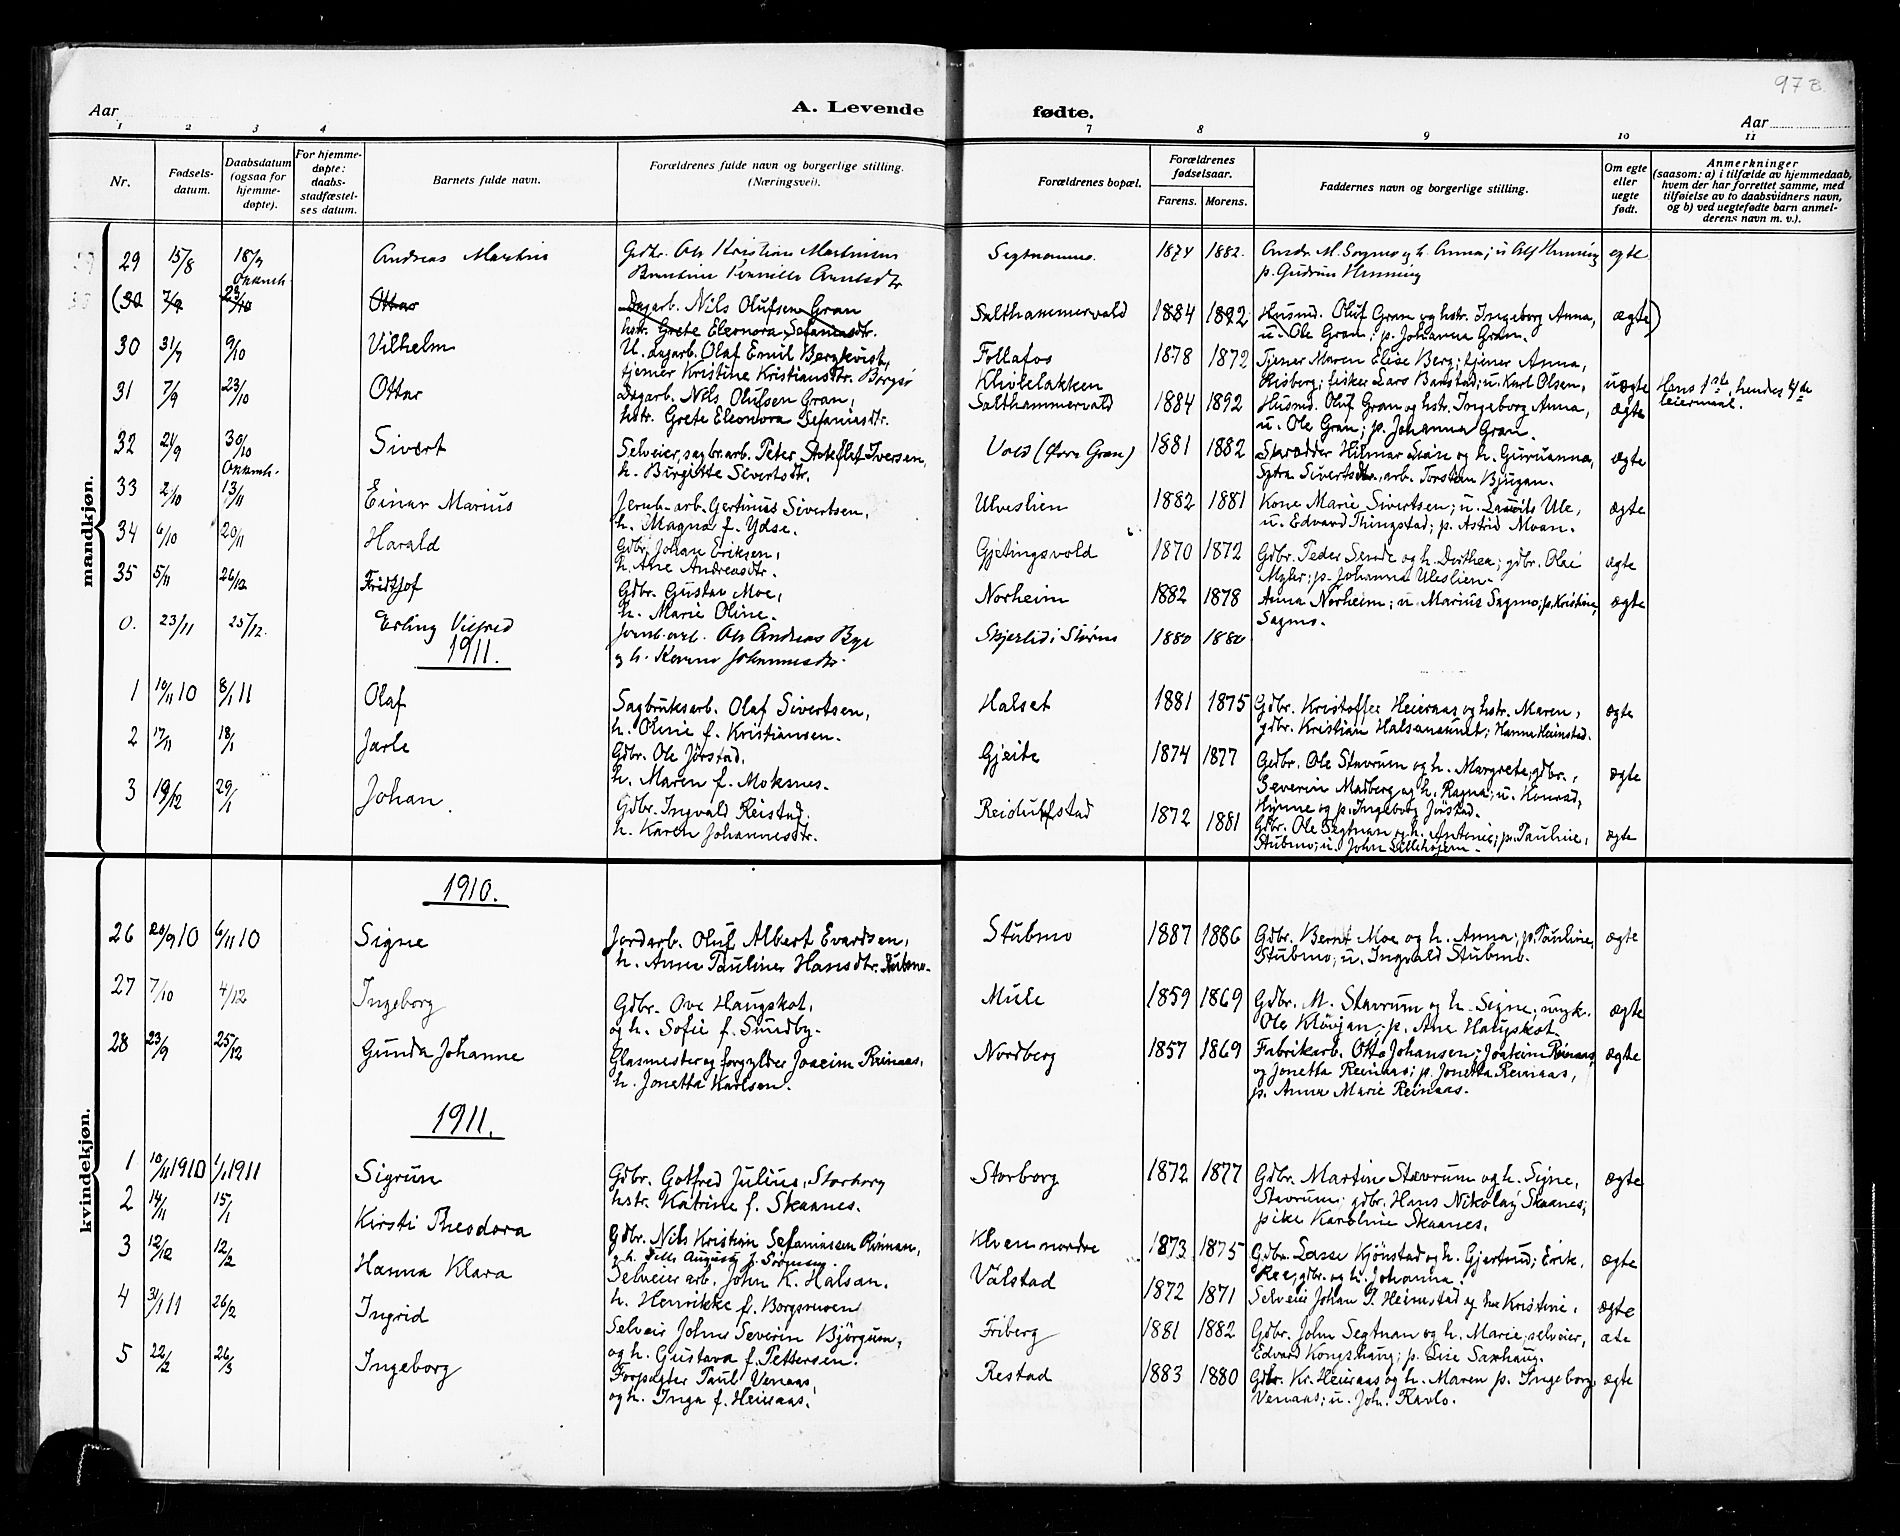 97 B.
Aar
A. Levende fødte.
Aar
1 2 3 4 7 8 9 10 11
Nr.
Fødsels-
datum.
Daabsdatum
(ogsaa for
hjemme-
døpte).
For hjemme-
døpte:
daabs-
stadfæstel-
ses datum.
Barnets fulde navn.
Forældrenes fulde navn og borgerlige stilling.
(Næringsvei).
Forældrenes bopæl.
Forældrenes
fødselsaar.
Farens. Morens.
Faddernes navn og borgerlige stilling.
Om egte
eller
uegte
født.
Anmerkninger
(saasom: a) i tilfælde av hjemmedaab,
hvem der har forrettet samme, med
tilføielse av to daabsvidners navn,
og b) ved uegtefødte barn anmel-
derens navn m. v.).
mandkjøn.
29 15/8 18/9 Andreas Martin Gdbr. Ole Kristian Martinsen 1874 1882. egte
p. Gudrun Henning
(30 7/9 23/10 Ottar Dagarb. Nils Olufsen Gran Salthammervald 1884 1892 Husmd. Oluf Gran og hstr. Ingeborg Anna, ægte)
hstr. Grete Eleonora Sefaniasdtr. u. Ole Gran; p. Johanna Gran.
30 31/7 9/10 Vilhelm U. dagarb. Olaf Emil Bergkvist, Follafos 1878 1872 Tjener Maren Elise Berg; tjener Anna
tjener Kristine Kristiansdtr. Borgsö Risberg; fisker Lars Banstad; u. Karl Olsen, uægte Hans 1ste, hendes 4de
leiermaal.
31 7/9 23/10 Ottar Dagarb. Nils Olufsen Gran, Salthammervald 1884 1892 Husmd. Oluf Gran og hstr. Ingeborg Anna, ægte
hstr. Grete Eleonora Sefaniasdtr. u. Ole Gran; p. Johanna Gran.
32 24/9 30/10 Sivert Selveier, sagbr.arb. Peter Iversen, Vold (Øvre Gran) 1881 1882 Skrædder Hilmar og h. Guruanna, ægte
h. Birgitte Sivertsdtr. arb. Torstan Bjugan.
33 2/10 13/11 Einar Marius Jernb-arb. Gertinius Sivertsen, Ulveslien 1882 1881 Kone Marie Sivertsen; u. Laurits Ule, ægte
h. Magna f. Ydse. u. Edvard Thingstad; p. Astrid Moan.
34 6/10 20/11 Harald Gdbr. Johan Eriksen, Gjetingsvold 1870 1872 Gdbr. Peder Sende og h. Dorthea; gdbr. Olai ægte
h. Ane Andreasdtr. Myhr; p. Johanna Uleslien.
35 5/11 26/12 Fridtjof Gdbr. Gustav Moe, Norheim 1882 1878 Anna Norheim; u. Marius Sagmo; p. Kristine, ægte
h. Marie Oline. Sagmo.
0. 23/11 25/12. Erling Vilfred Jernb.arb. Ole Andreas Bye 1880 1880
og h. Johannesdtr.
1911.
1 10/11 10 8/1 11 Olaf Sagbruksarb. Olaf Sivertsen, Halset 1881 1875 Gdbr. Kristoffer Heieraas og hstr. Maren, ægte
h. Oline f. Kristiansen. gdbr. Kristian Halsanaunet; Hanna Heimstad.
2 17/11 18/1 Jarle Gdbr. Ole Jörstad, Gjeite 1874 1877 Gdbr. Ole Stavrum og h. Margrete; gdbr., ægte
h. Maren f. Moksnes. Severin Madberg og h. Ragna; u. Konrad,
Hynne og p. Ingeborg Jöstad.
3 19/12 29/1 Johan. Gdbr. Ingvald Reistad. Reidulfstad 1872 1881 Gdbr. Ole Segtnan og h. Antonie; p. Pauline, ægte
h. Karen Johannesdtr. Stubmo; u. John Lillehojem.
kvindekjøn.
1910.
26 20/9 10 6/11 10 Signe Jordarb. Oluf Albert Evardsen, Stubmo 1887 1886 Gdbr. Bernt Moe og h. Anna; p. Pauline, ægte
h. Anna Pauline Hansdtr. Stubmo. Stubmo; u. Ingvald Stubmo.
27 7/10 4/12 Ingeborg Gdbr. Ove Haugskot, Mule 1859 1869 Gdbr. M. Stavrum og h. Signe, ungk. ægte
og h. Sofie f. Sundby. Ole Klövjan; p. Ane Haugskot.
28 23/9 25/12 Gunda Johanne Glasmester og forgylder Joacim Reinaas, Nordberg 1857 1869 Fabrikarb. Otto Johansen; Joakim Reinaas, ægte
h. Jonetta Karlsen. og Jonetta Reinaas; p. Jonetta Reinaas,
p. Anna Marie Reinaas.
1911.
1 10/11 1910 1/1 1911 Sigrun Gdbr. Gotfred Julius Storborg Storborg 1872 1877 Gdbr. Martin Stavrum og h. Signe, ægte
hstr. Katrine f. Skaanes. Stavrum; gdbr. Hans Nikolay Skaanes;
pike Karoline Skaanes.
2 14/11 15/1 Kirsti Theodora Gdbr. Nils Kristian Sefaniassen Reinan, Kluen nordre 1873 1875 Gdbr. Lasse Kjönstad og h. Gjertrud; Erik, ægte
gdbr. og h. Johanna.
3 12/12 12/2 Hanna Klara Selveier arb. John K. Halsan. Välstad 1872 1871 Selveier Johan P. Heimstad og hu Kristine, ægte
h. Henrikke f. Borgsmoen
4 31/1 11 26/2 Ingrid Selveir Johns Severin Björgum, Friberg 1881 1882 Gdbr. John Segtnan og h. Marie; selveier, æte
og h. Gustava f. Pettersen. Edvard Kongshaug; p. Lise Saxhaug.
5 22/2 26/3 Ingeborg Forpagter Paul Venaas, Restad 1883 1880 Gdbr. Kr. Heieraas og h. Maren p. Ingeborg ægte
og h. Inga f. Heieraas. Venaas; u. Joh. Ravlo.